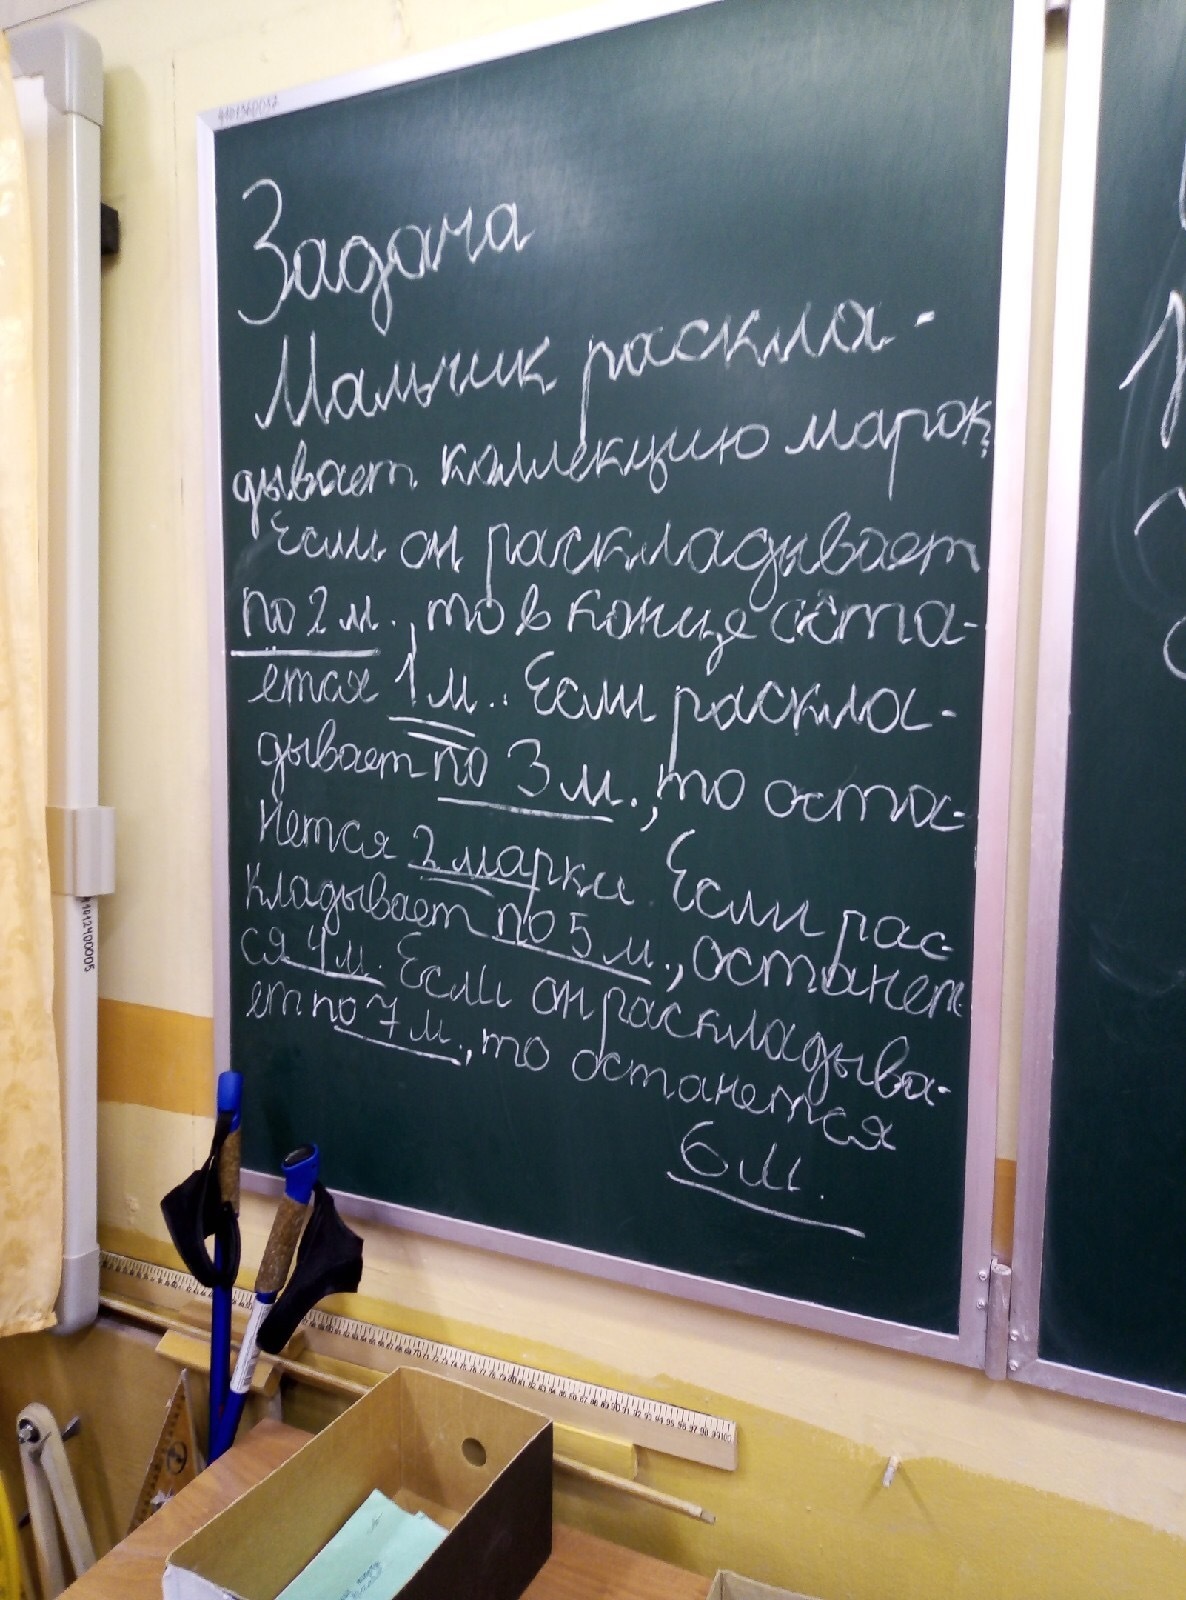 Задача
Мальчик раскла-
дывает коллекцию марок.
Если он раскладывает
по 2 м., то в конце оста-
ётся 1 м. Если раскла-
дывает по 3 м., то оста-
нется 2 марки. Если рас-
кладывает по 5 м., останет
ся 4 м. Если он раскладыва-
ет по 7 м., то останется
6 м.